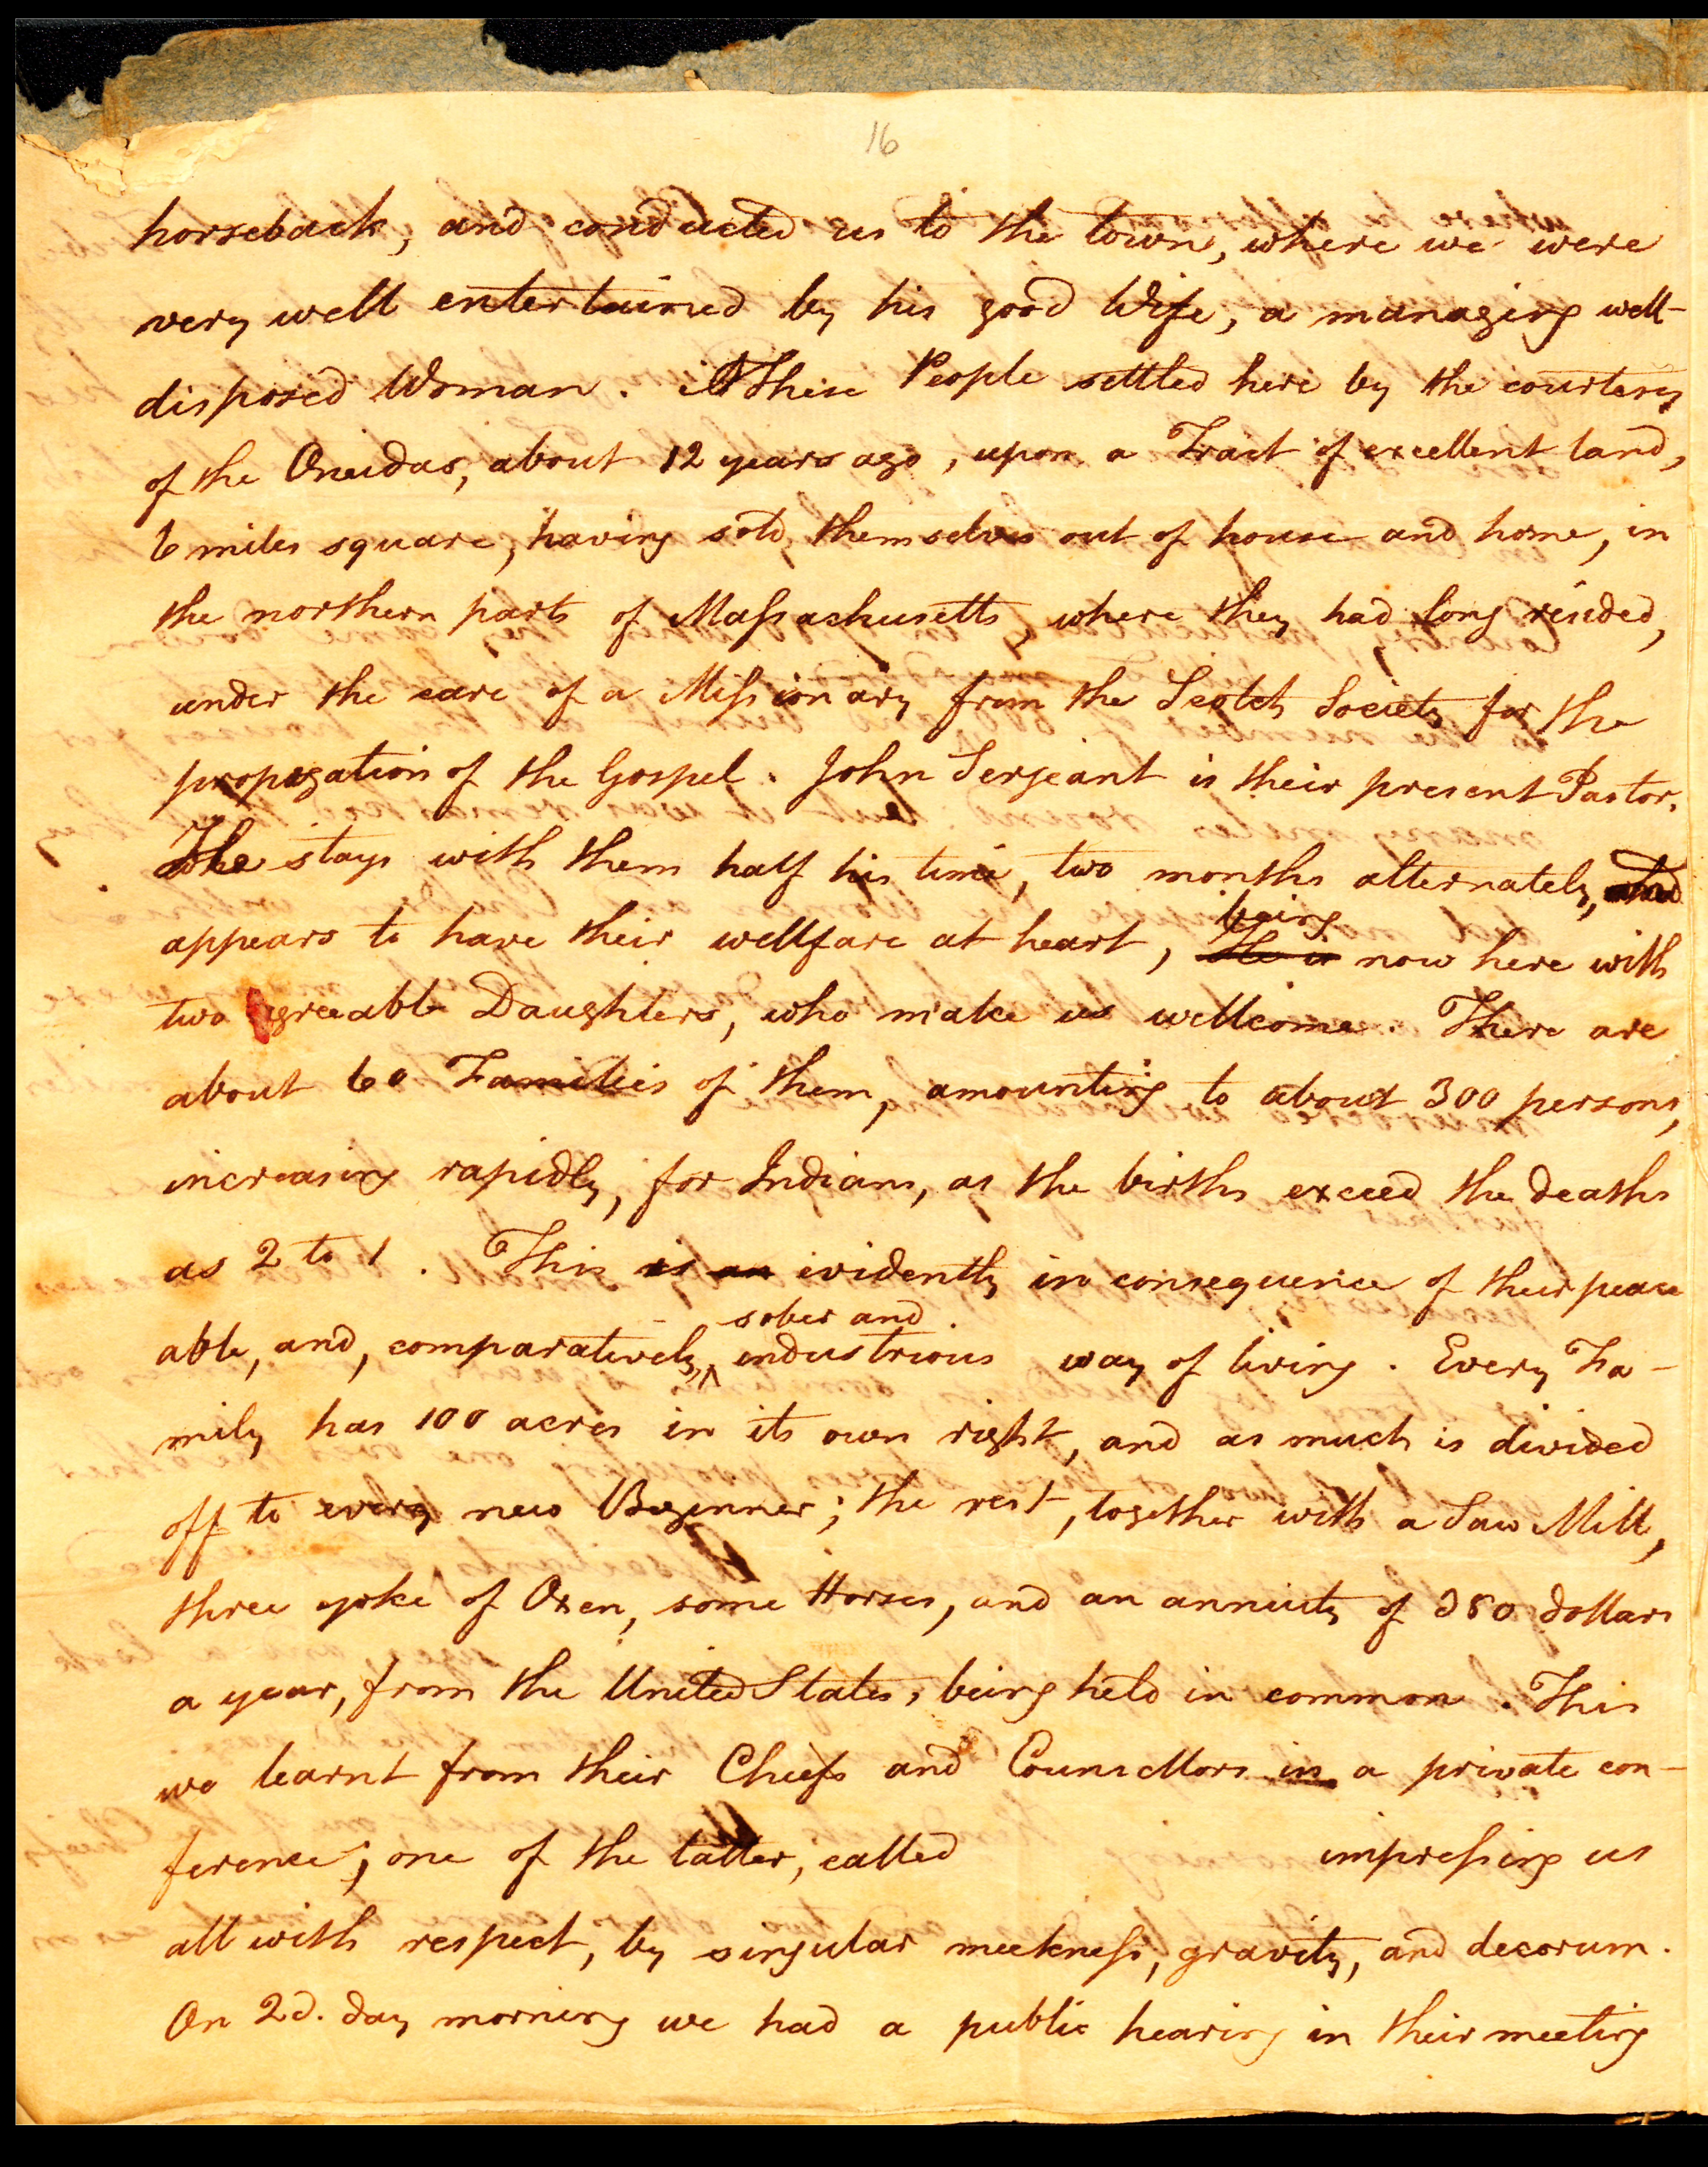 16
horseback, and conducted us to the town, where we were
very well entertained by his good Wife, a managing well-
disposed Woman. These People settled here by the courtesy
of the Oneidas, about 12 years ago, upon a Tract of excellent land,
6 miles square, having sold themselves out of house and home, in
the northern parts of Massachusetts, where they had long resided,
under the care of a Missionary from the Scotch Society for the
propogation of the Gospel. John Sergeant is their present Pastor.
He stays with them half his time, two months alternately, and
appears to have their wellfare at heart, being He is now here with
two agreeable Daughters, who make us wellcome. There are
about 60 Families of them, amounting to about 300 persons,
increasing rapidly, for Indians, as the births exceed the deaths
as 2 to 1. This is an evidently in consequence of their peace
able, and, comparatively, sober and industrious way of living. Every Fa-
mily has 100 acres in its own right, and as much is divided
off to every new Beginner; the rest, together with a Saw Mill,
three yoke of Oxen, some Horses, and an annuity of 350 dollars
a year, from the United States, being held in common. This
we learnt from their Chiefs and Councellors in a private con-
ference; one of the latter, called impressing us
all with respect, by singular meekness, gravity, and decorum.
On 2d. day morning we had a public hearing in their meeting